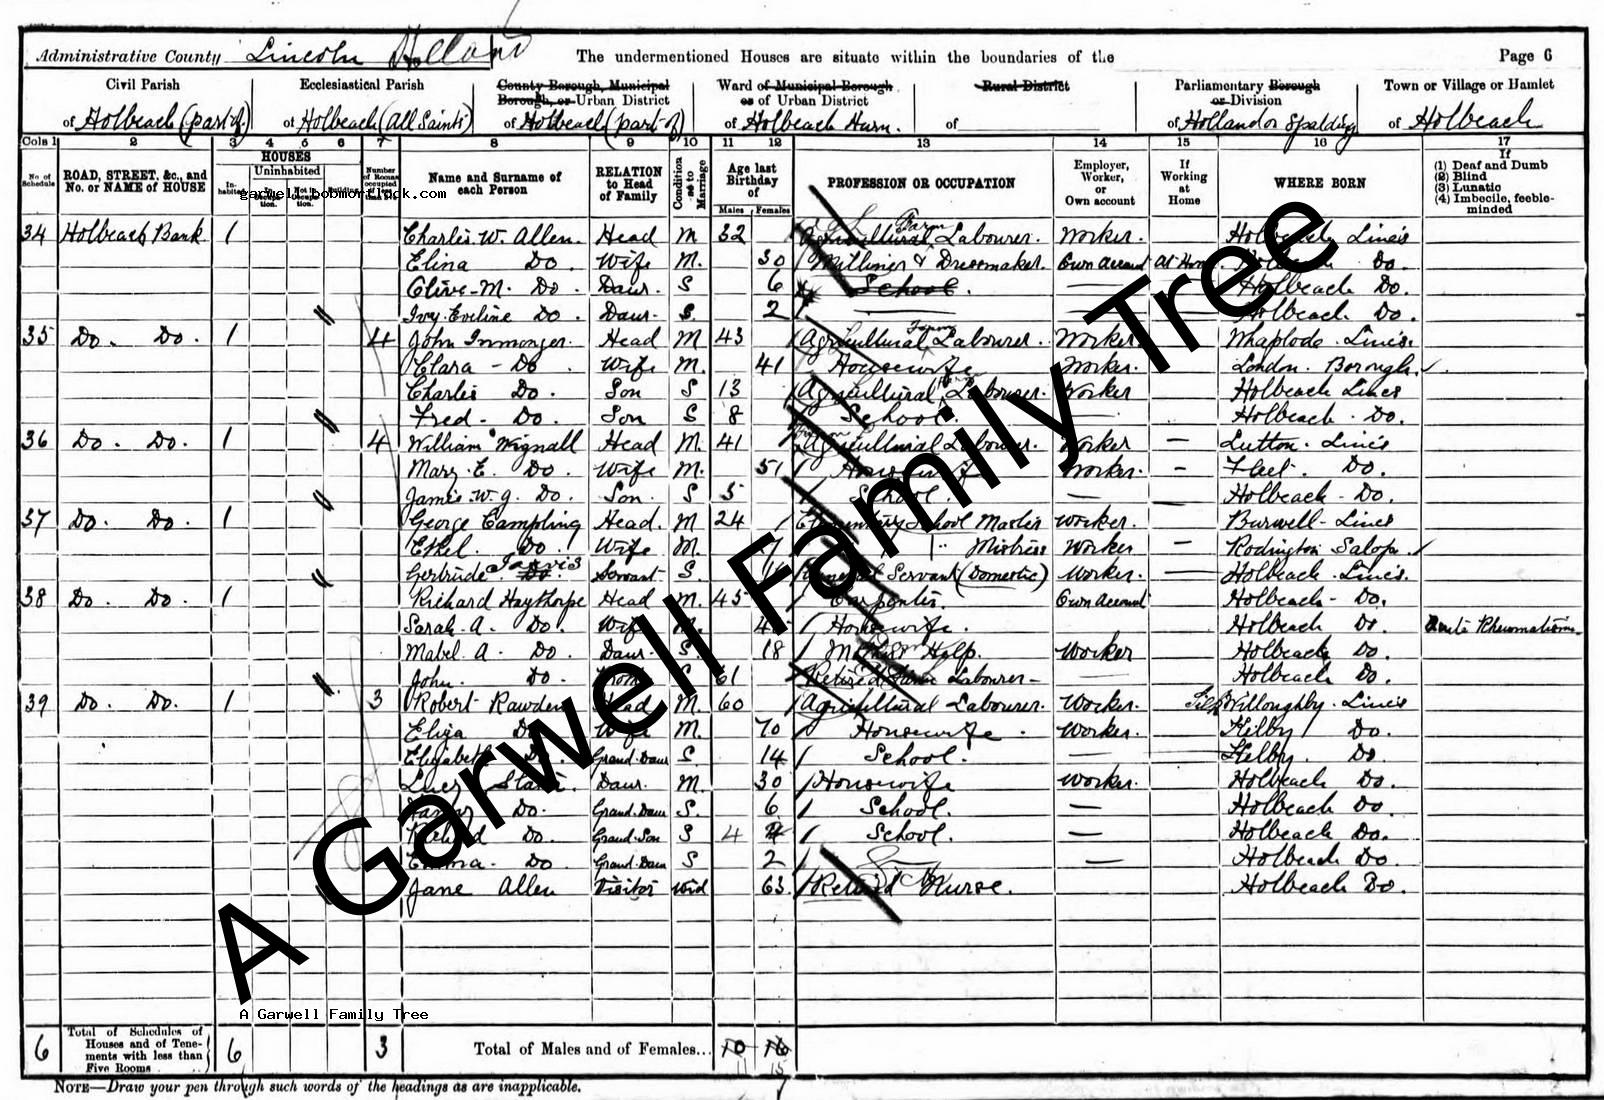 Administrative County Lincoln Holland The undermentioned Houses are situate within the boundaries of the Page 6
Civil Parish Ecclesiastical Parish County Borough, Municipal Borough, or Urban District Ward of Municipal Borough or of Urban District Rural District Parliamentary Borough or Division Town or Village or Hamlet
of Holbeach (part of) of Holbeach (All Saints) of Holbeach (part of) of Holbeach Hurn. of of Holland or Spalding of Holbeach
Cols 1 2 3 4 5 6 7 8 9 10 11 12 13 14 15 16 17
No. of Schedule ROAD, STREET, &c., and No. or NAME of HOUSE HOUSES Inhabited Uninhabited Building Name and Surname of each Person RELATION to Head of Family Condition as to Marriage Age last Birthday of Males Females PROFESSION OR OCCUPATION Employer, Worker, or Own account If Working at Home WHERE BORN If (1) Deaf and Dumb (2) Blind (3) Lunatic (4) Imbecile, feeble-minded
garwell.bobmortlock.com
34 Holbeach Bank 1 Charles. W. Allen. Head M 32 Agricultural Farm Labourer. Worker. Holbeach Lincs
Elina Do. Wife M. 30 Milliner & Dressmaker. Own Account At Home. Holbeach Do.
Olive. M. Do. Daur. S 6 School. Holbeach Do.
Ivy. Eveline Do. Daur. S. 2 Holbeach Do.
35 Do. Do. 1 4 John Head M 43 Agricultural Farm Labourer. Worker Whaplode. Lincs.
Clara - Do. Wife M. 41 Housewife Worker. London. Borough.
Charles Do. Son S 13 Agricultural Labourer. Worker Holbeach Lincs
Fred - Do. Son S 8 School Holbeach. Do.
36 Do. Do. 1 4 William Wignall Head M. 41 Agricultural Labourer. Worker - Lutton. Lincs
Mary. E. Do. Wife M. 51 Housewife Worker. - Fleet. Do.
James. W. G. Do. Son. S 5 School. Holbeach - Do.
37 Do. Do. 1 George Campling Head. M 24 Elementary School Master Worker. Burwell - Lincs
Ethel. Do. Wife M. Mistress Worker - Rodington Salop.
Gertrude Jarvis Servant S. General Servant (Domestic) Worker. - Holbeach. Lincs.
38 Do. Do. 1 Richard Haythorpe Head M. 45 Carpenter. Own Account Holbeach - Do.
Sarah. A. Do. Wife M. Housewife. Holbeach Do. Rheumatism
Mabel. A. Do. Daur. S. 18 Mother's Help. Worker Holbeach Do.
John. Do. S 61 Retired Farm Labourer - Holbeach Do.
39 Do. Do. 1 3 Robert Rawden Head M. 60 Agricultural Labourer. Worker. Silk Willoughby. Lincs
Eliza Do. Wife M. 70 Housewife. Worker. Do.
Elizabeth Do. Grand. Daur S 14 School. Do.
Lucy Daur. M. 30 Housewife Worker. Holbeach Do.
Do. Grand. Daur S. 6 School. Holbeach Do
Do. Grand. Son S 4 School. Holbeach Do.
Emma. Do Grand. Daur S 2 Holbeach Do.
Jane Allen Visitor Wid 63 Retired Nurse. Holbeach Do.
A Garwell Family Tree
A Garwell Family Tree
6 Total of Schedules of Houses and of Tenements with less than Five Rooms 6 3 Total of Males and of Females... 10 16
11 15
NOTE—Draw your pen through such words of the headings as are inapplicable.